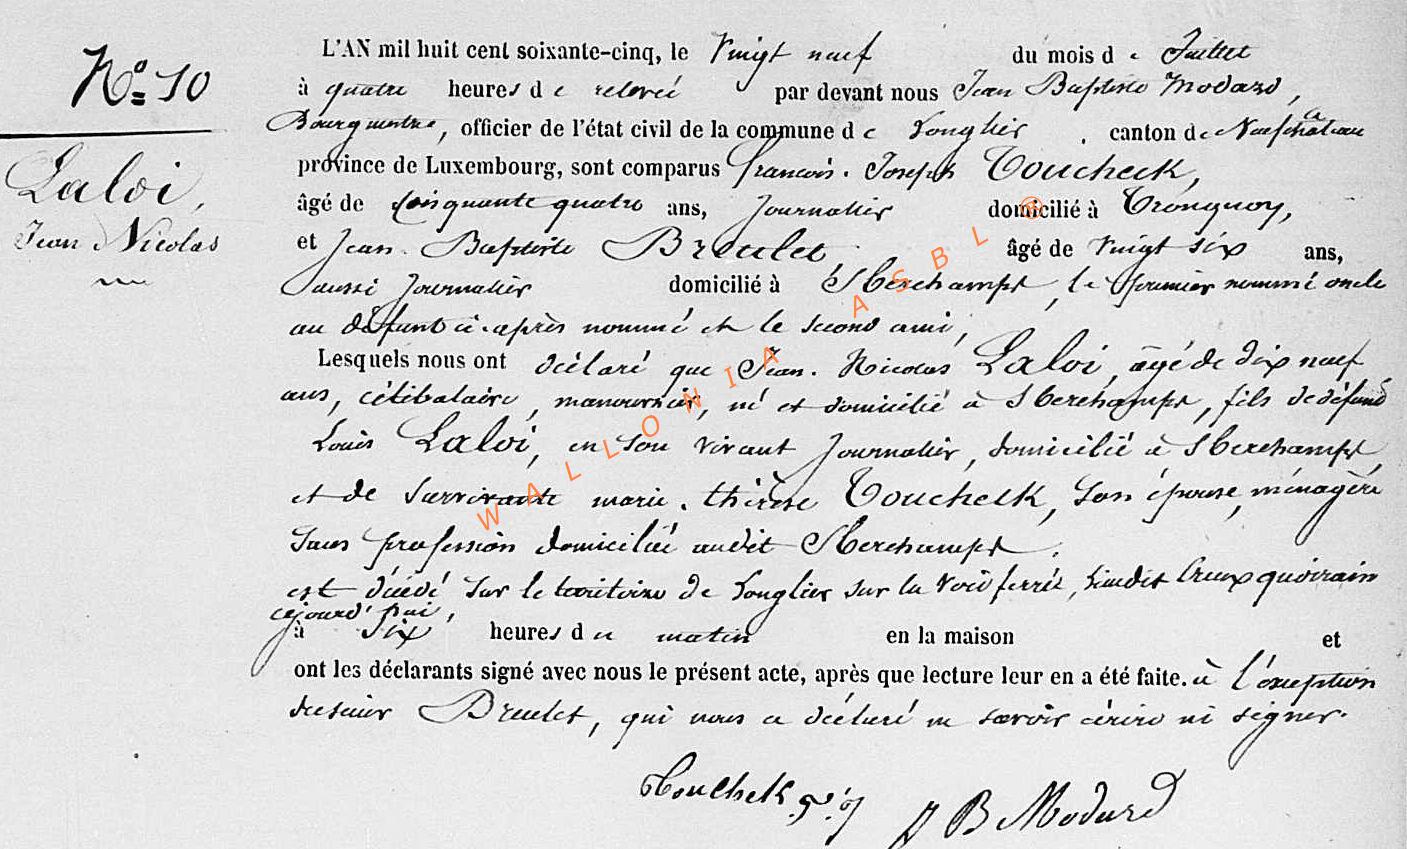 N.º 10
Laloi,
Jean Nicolas
L'AN mil huit cent soixante-cinq, le Vingt neuf du mois de Juillet
à quatre heures de relevée par devant nous Jean Baptiste Modard,
Bourgmestre, officier de l'état civil de la commune de Longlier, canton de Neufchateau
province de Luxembourg, sont comparus françois. Joseph Toucheck,
âgé de Cinquante quatre ans, Journalier domicilié à Tronquoy,
et Jean. Baptiste Breulet, âgé de Vingt six ans,
aussi Journalier domicilié à Sberchamps, le premier nommé oncle
au défunt ci-après nommé et le second ami,
Lesquels nous ont déclaré que Jean. Nicolas Laloi, âgé de dix neuf
ans, célibataire, manouvrier, né et domicilié à Sberchamps, fils de défunt
Louis Laloi, en son vivant Journalier, domicilié à Sberchamps,
et de survivante marie. thérèse Toucheck, son épouse, ménagère
sans profession domiciliée audit Sberchamps.
est décédé sur le territoire de Longlier sur la Voie ferrée, lieudit
cejourd'hui,
à six heures du matin en la maison et
ont les déclarants signé avec nous le présent acte, après que lecture leur en a été faite. à l'exception
du sieur Breulet, qui nous a déclaré ne savoir écrire ni signer.
Toucheck J B Modard
WALLONIA ASBL ®